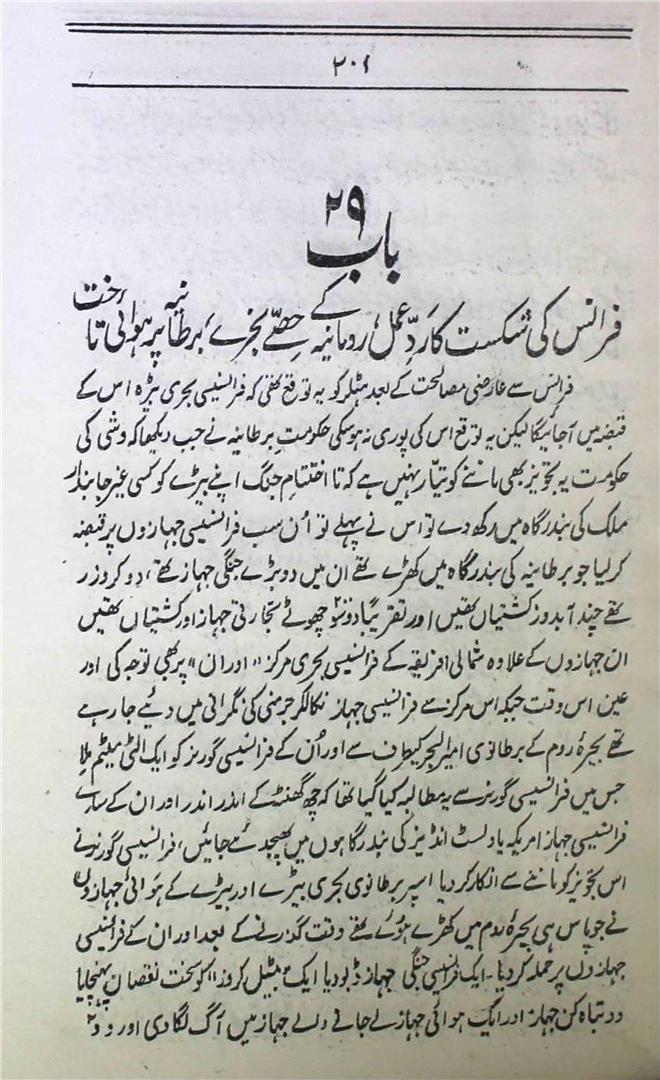 ۲۰۱
باب ۲۹
فرانس کی شکست کا ردِّ عمل، رومانیہ کے حصّے بخرے، برطانیہ پر ہوائی تاخت
فرانس سے عارضی مصالحت کے بعد ہٹلر کو یہ توقع تھی کہ فرانسیسی بحری بیڑہ اس کے
قبضہ میں آجائیگا لیکن یہ توقع اس کی پوری نہ ہوسکی حکومتِ برطانیہ نے جب دیکھا کہ وشی کی
حکومت یہ تجویز بھی ماننے کو تیار نہیں ہے کہ تا اختتامِ جنگ اپنے بیڑے کو کسی غیر جانبدار
ملک کی بندرگاہ میں رکھ دے تو اس نے پہلے تو اُن سب فرانسیسی جہازوں پر قبضہ
کر لیا جو برطانیہ کی بندرگاہ میں کھڑے تھے ان میں دو بڑے جنگی جہاز تھے، دو کروزر
تھے چند آبدوز کشتیاں تھیں اور تقریباً دو سو چھوٹے تجارتی جہاز اور کشتیاں تھیں
ان جہازوں کے علاوہ شمالی افریقہ کے فرانسیسی بحری مرکز "اوران" پر بھی توجہ کی اور
عین اس وقت جبکہ اس مرکز سے فرانسیسی جہاز نکالکر جرمنی کی نگرانی میں دیئے جا رہے
تھے بحیرۂ روم کے برطانوی امیر البحر کیطرف سے اوران کے فرانسیسی گورنر کو ایک الٹی میٹم ملا
جس میں فرانسیسی گورنر سے یہ مطالبہ کیا گیا تھا کہ چھ گھنٹہ کے اندر اندر اوران کے سارے
فرانسیسی جہاز امریکہ یا ویسٹ انڈیز کی بندرگاہوں میں بھیجدئے جائیں، فرانسیسی گورنر نے
اس تجویز کو ماننے سے انکار کر دیا اسپر برطانوی بحری بیڑے اور بیڑے کے ہوائی جہازوں
نے جو پاس ہی بحیرۂ روم میں کھڑے ہوئے تھے وقت گذرنے کے بعد اوران کے فرانسیسی
جہازوں پر حملہ کر دیا۔ ایک فرانسیسی جنگی جہاز ڈبو دیا ایک "بیٹل کروزر" کو سخت نقصان پہنچایا
دو تباہ کن جہاز اور ایک ہوائی جہاز لے جانے والے جہاز میں آگ لگا دی اور دو